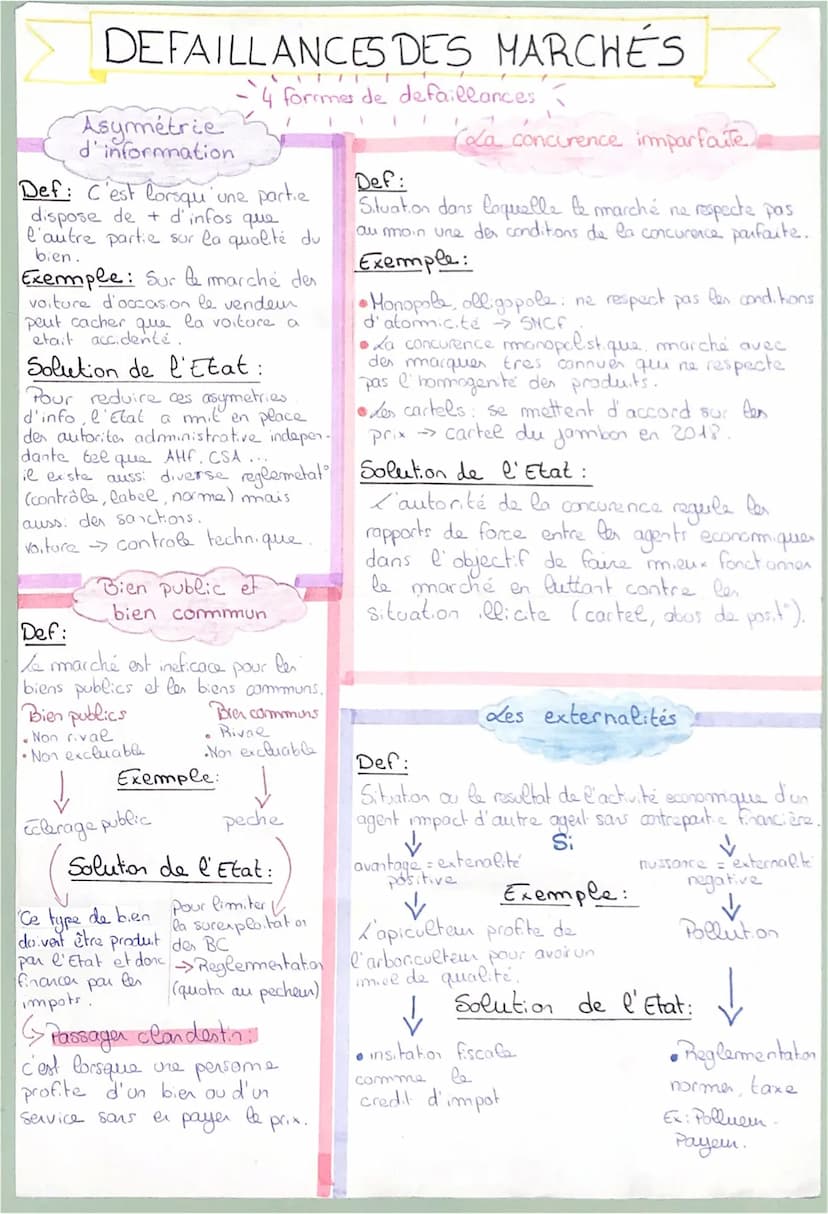 DEFAILLANCES DES MARCHÉS
4 formes de defaillances
Asymétrie
d'information
Def: C'est lorsqu'une partie
dispose de + d'infos que
l'autre partie sur la qualité du
bien.
Exemple: Sur le marché des
voiture d'occasion le vendeur
peut cacher que la voiture a
etait accidenté.
Solution de l'Etat:
Pour reduire ces asymetries
d'info, l'Etat a mit en place
des autorites administrative indepen-
dante tel que AMF, CSA ...
il existe aussi diverse reglemetat°
(contrôle, label, norme) mais
aussi des sanctions.
voiture → controle technique.
La concurence imparfaite
Def:
Situation dans laquelle le marché ne respecte pas
au moin une des conditons de la concurence parfaite.
Exemple:
• Monopole, olligopole: ne respect pas les conditions
d'atomicité → SNCF
• La concurence monopolistique, marché avec
des marques tres connues qui ne respecte
pas l'homogenté des produits.
• Les cartels: se mettent d'accord sur les
prix → cartel du jambon en 2018.
Solution de l'Etat:
L'autorité de la concurence regule les
rapports de force entre les agents economiques
dans l'objectif de faire mieux fonctionner
le marché en luttant contre les
situation illicite (cartel, abus de posit°).
Bien public et
bien commun
Def:
Le marché est ineficace pour les
biens publics et les biens communs.
Bien publics
• Non rival
• Non excluable
Bien communs
• Rival
• Non excluable
Exemple:
Éclerage public
peche
Solution de l'Etat:
Ce type de bien
doivent être produit
par l'Etat et donc
financer par les
impots.
Pour limiter
la surexploitation
des BC
→ Reglementation
(quota au pecheur)
↳ Passager clandestin:
c'est lorsque une personne
profite d'un bien ou d'un
service sans en payer le prix.
Les externalités
Def:
Situation ou le resultat de l'activité economique d'un
agent impact d'autre agent sans contrepartie financière.
Si
avantage = extenalité
positive
nuissance = externalité
negative
Exemple:
L'apiculteur profite de
l'arboriculteur pour avoir un
miel de qualité.
Pollution
Solution de l'Etat:
• insitation fiscale
comme le
credit d'impot
• Reglementation
normes, taxe
Ex: Pollueur -
Payeur.